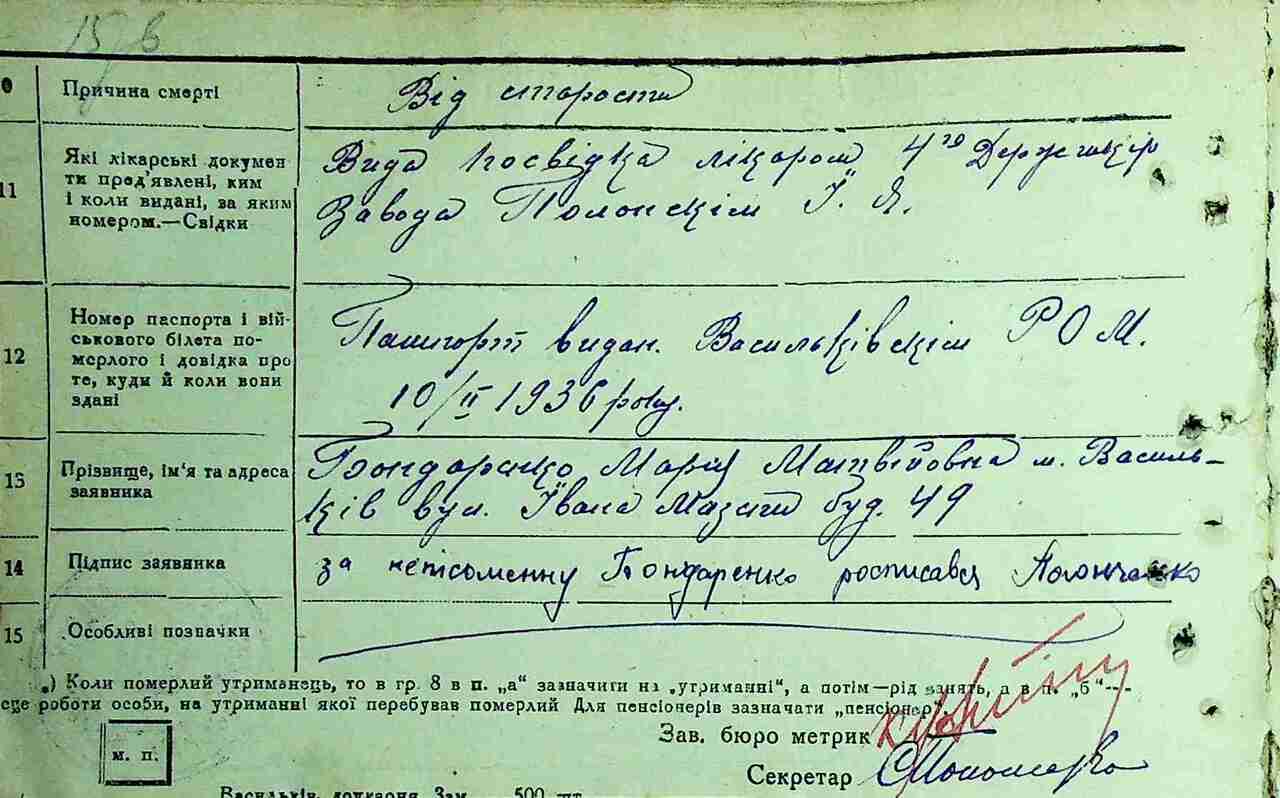 15/в
Причина смерті
Від старости
11
Які лікарські докумен
ти пред'явлені, ким
і коли видані, за яким
номером.—Свідки
Вида посвідка лікаром 4го Держшкір
Завода Полонскім І. Я.
12
Номер паспорта і вій-
ськового білета по-
мерлого і довідка про
те, куди й коли вони
здані
Пашпорт видан. Васильківскім Р О М.
10/II 1936 року.
13
Прізвище, ім'я та адреса
заявника
Бондаренко Марія Матвіївна м. Василь-
ків вул. Івана Мазепи буд. 49
14
Підпис заявника
за неписьменну Бондаренко росписався
15
Особливі позначки
*) Коли померлий утриманець, то в гр. 8 в п. „а" зазначити на „утриманні", а потім—рід занять, а в п. „б"—
сце роботи особи, на утриманні якої перебував померлий Для пенсіонерів зазначати „пенсіонер".
Зав. бюро метрик
м. п.
Секретар
Васильків, друкарня Зам. 500 шт.